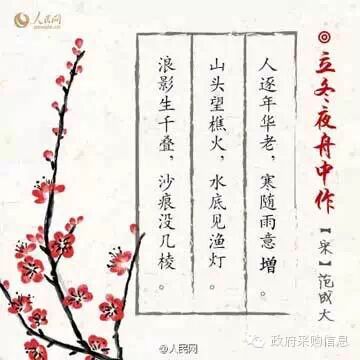 人民网
people.cn
立冬夜舟中作
【宋】范成大
人逐年华老，寒随雨意增。
山头望樵火，水底见渔灯。
浪影生千叠，沙痕没几棱。
@人民网
政府采购信息